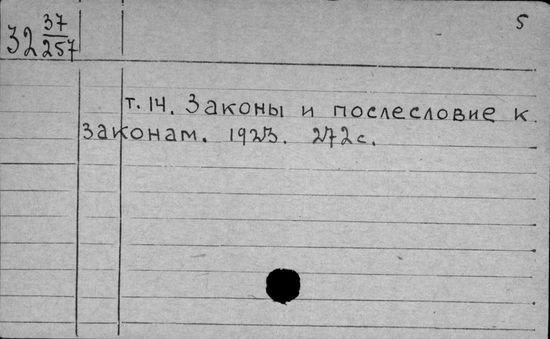 5
32 37/257
т. 14. Законы и послесловие к
законам. 1923. 272 с.